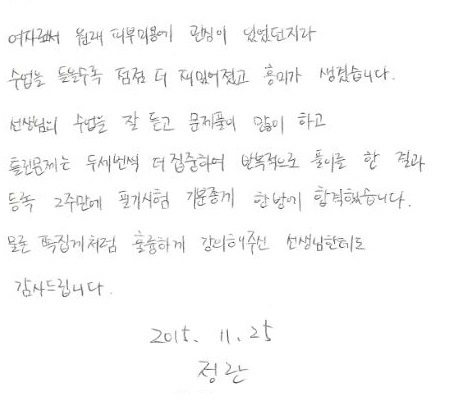 여자로서 원래 피부미용에 관심이 있었던지라
수업을 들을수록 점점 더 재밌어졌고 흥미가 생겼습니다.
선생님의 수업을 잘 듣고 문제풀이 많이 하고
틀린문제는 두세번씩 더 집중하여 반복적으로 풀이를 한 결과
등록 2주만에 필기시험 기분좋게 한방에 합격했습니다.
물론 족집게처럼 훌륭하게 강의해주신 선생님한테도
감사드립니다.
2015. 11. 25
정란